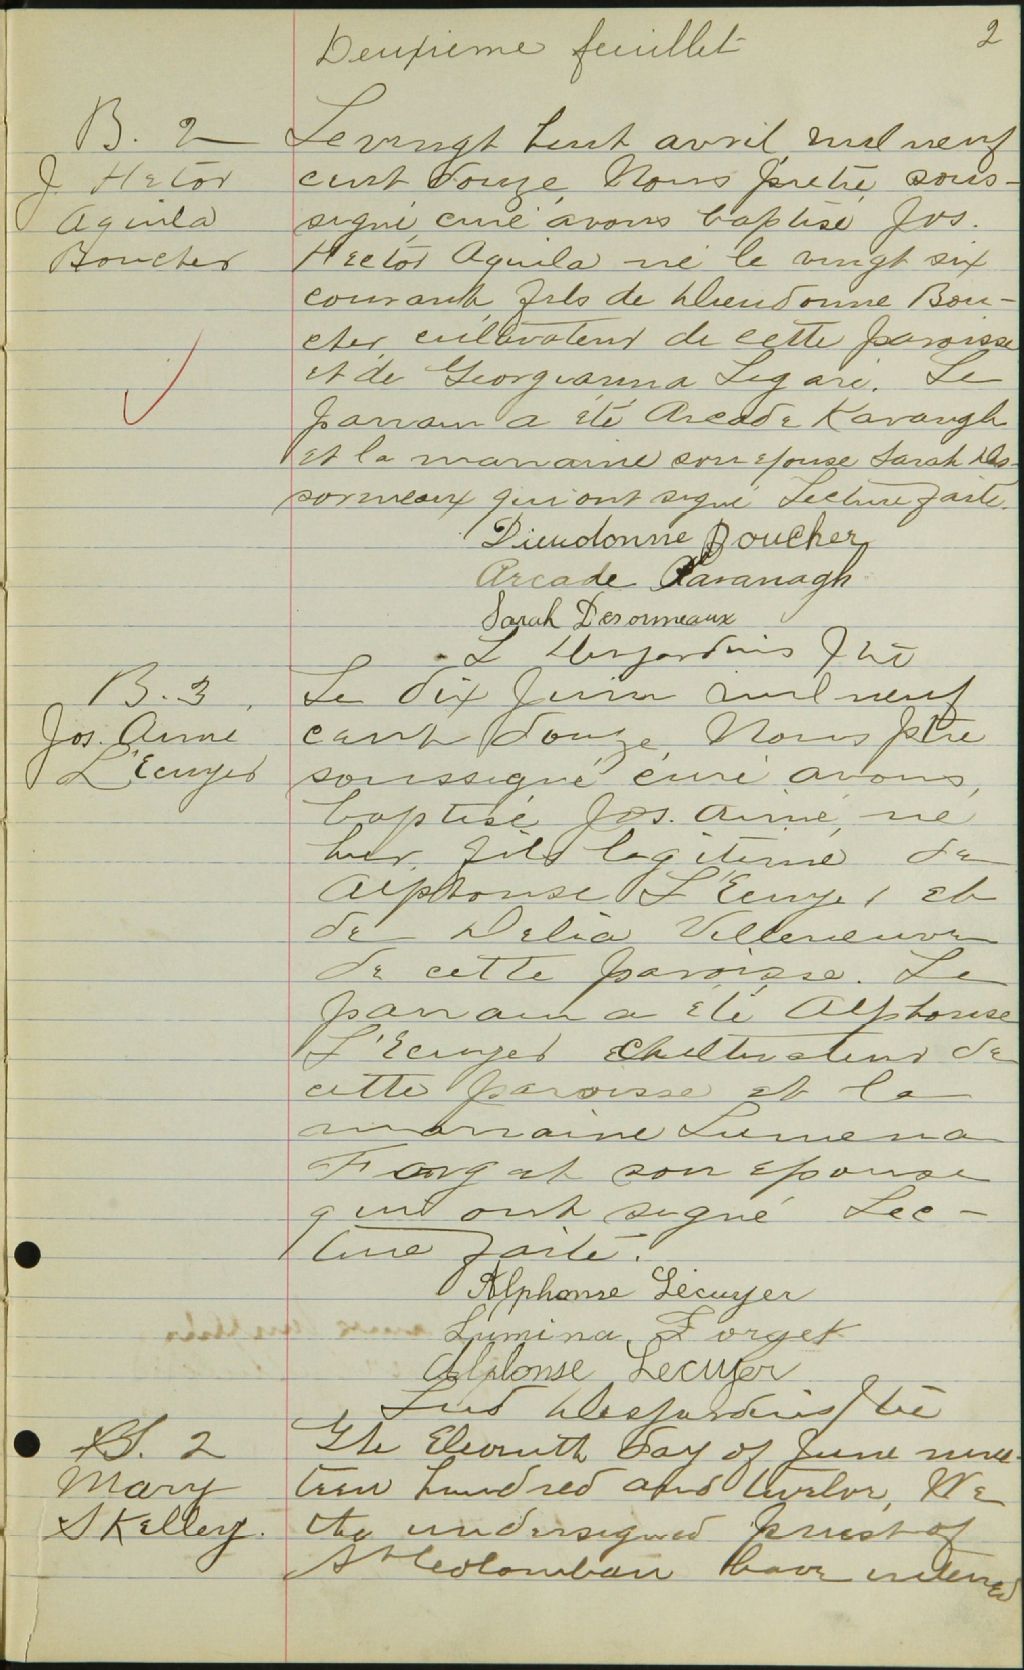 Deuxieme feuillet
2
B. 2
J. Hector
Aquila
Boucher
Le vingt huit avril, mil neuf
cent douze, Nous prêtre sous-
signé, curé avons baptisé Jos.
Hector Aquila né le vingt six
courant fils de Dieudonne Bou-
cher cultivateur de cette paroisse
et de Georgianna Legaré. Le
parrain a été Arcade Kavangh
et la marraine son epouse Sarah Des-
sormeaux qui ont signé Lecture faite.
Dieudonne Boucher
Arcade Kavanagh
Sarah Desormeaux
L Desjardins Ptre
B. 3
Jos. Aimé
L'Ecuyer
Le dix Juin mil neuf
cent douze, Nous ptre
soussigné curé avons,
baptisé Jos. Aimé, né
hier, fils legitime de
Alphonse L'Ecuyer et
de Delia Villeneuve
de cette paroisse. Le
parrain a été Alphonse
L'Ecuyer cultivateur de
cette paroisse et la
marraine Lumena
Forget son epouse
qui ont signé Lec-
ture faite.
Alphonse Lécuyer
Lumina Forget
Alphonse Lecuyer
Lud Desjardins Ptre
S. 2
Mary
Skelley.
The Eleventh day of June nine-
teen hundred and twelve, We
the undersigned priest of
St Colomban have interred